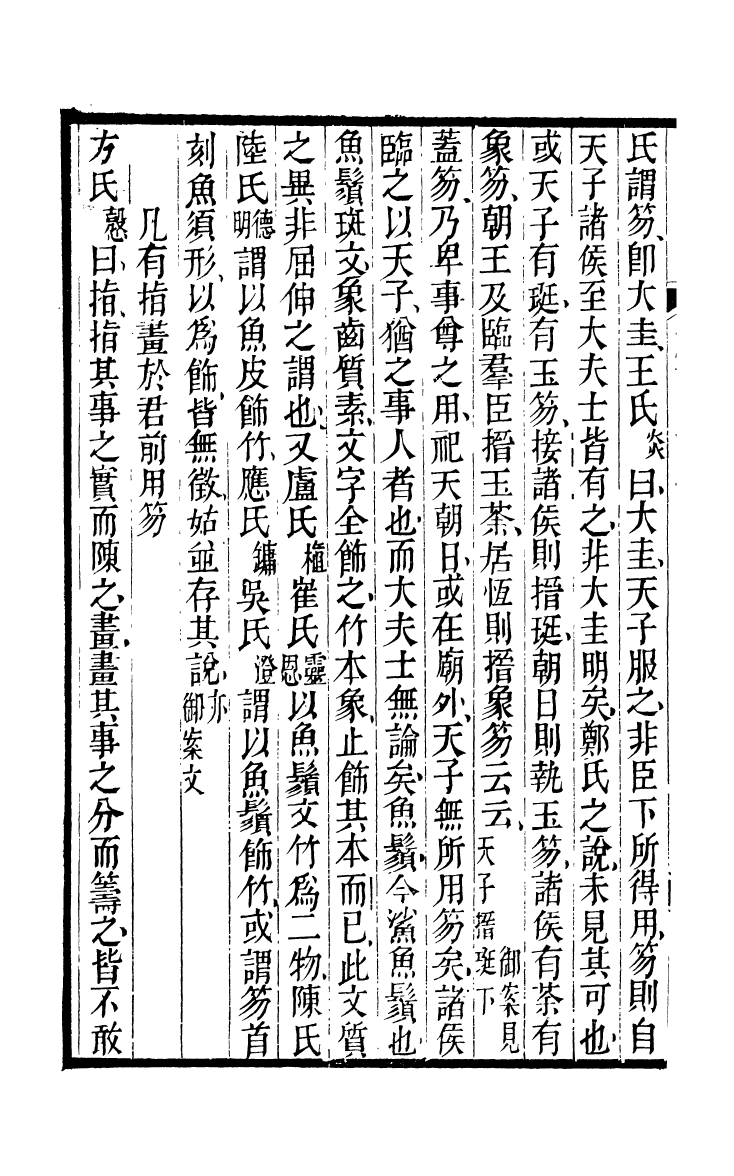 氏謂笏、卽大圭、王氏炎曰、大圭、天子服之、非臣下所得用、笏則自
天子諸侯至大夫士皆有之、非大圭明矣、鄭氏之說、未見其可也、
或天子有珽、有玉笏、接諸侯則搢珽、朝日則執玉笏、諸侯有荼有
象笏、朝王及臨羣臣搢玉荼、居恆則搢象笏云云、御案見天子搢珽下
蓋笏、乃卑事尊之用、祀天朝日、或在廟外、天子無所用笏矣、諸侯
臨之以天子、猶之事人者也、而大夫士無論矣、魚鬚、今鯊魚鬚也、
魚鬚斑文、象齒質素、文字全飾之、竹本象、止飾其本而已、此文質
之異、非屈伸之謂也、又盧氏植崔氏靈恩以魚鬚文竹爲二物、陳氏
陸氏德明謂以魚皮飾竹、應氏鏞吳氏澄謂以魚鬚飾竹、或謂笏首
刻魚須形、以爲飾、皆無徵、姑並存其說、御案文亦
凡有指畫於君前用笏
方氏慤曰、指、指其事之實而陳之、畫、畫其事之分而籌之、皆不敢